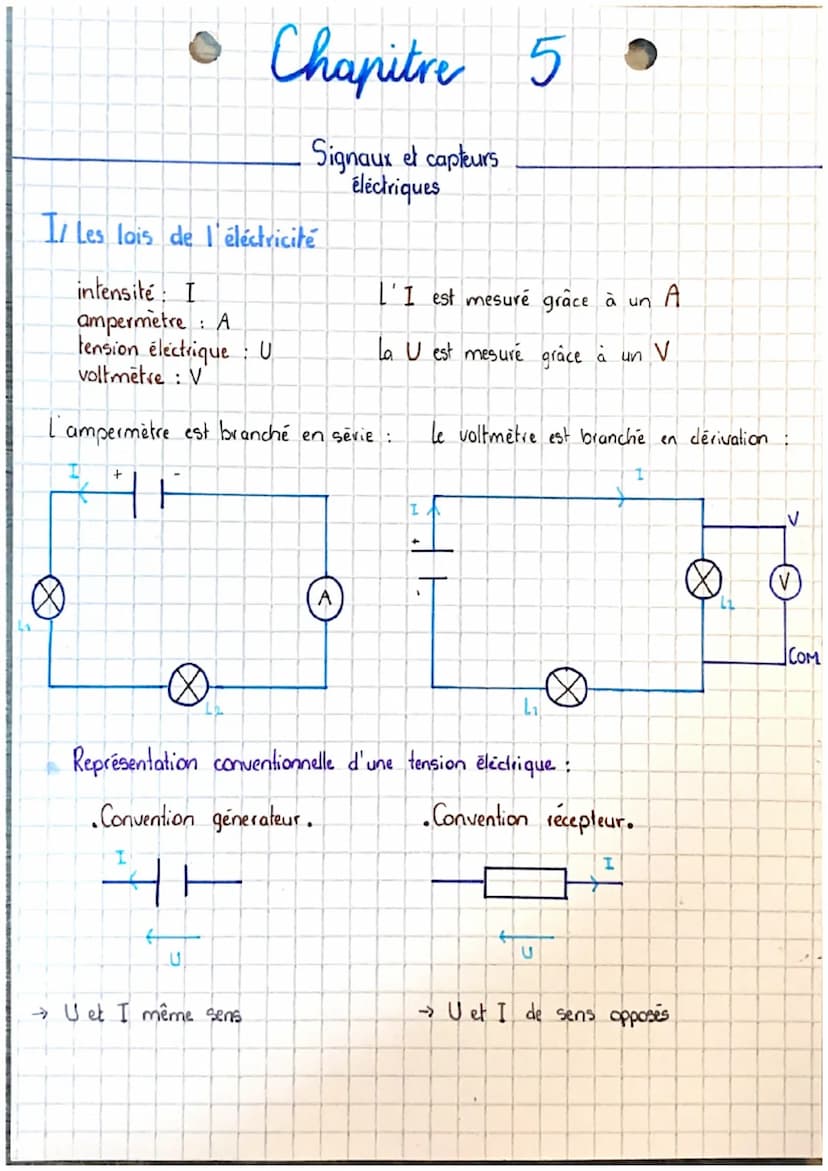 Chapitre 5
Signaux et capteurs
éléctriques
I/ Les lois de l'éléctricité
intensité : I
ampermètre : A
tension éléctrique : U
voltmètre : V
L'I est mesuré grâce à un A
La U est mesuré grâce à un V
L'ampermètre est branché en série :
Le voltmètre est branché en dérivation :
I
+
-
L1
A
L2
I
I
+
-
V
V
L2
COM
L1
Représentation conventionnelle d'une tension éléctrique :
.Convention génerateur.
.Convention récepteur.
I
U
I
U
→ U et I même sens
→ U et I de sens opposés